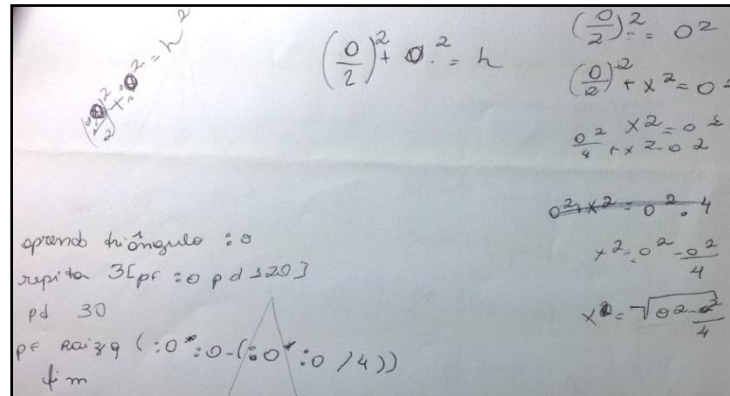 (o/2)² + o² = h²
(o/2)² + o.² = h
(o/2)² = o²
(o/2)² + x² = o²
x² = o²
o²/4 + x² = o²
o² + x² = o² . 4
x² = o² - o²/4
x = √o² - o²/4
aprenda triângulo :o
repita 3[pf :o pd 120]
pd 30
pf raizq (:o*:o-(:o*:o/4))
fim